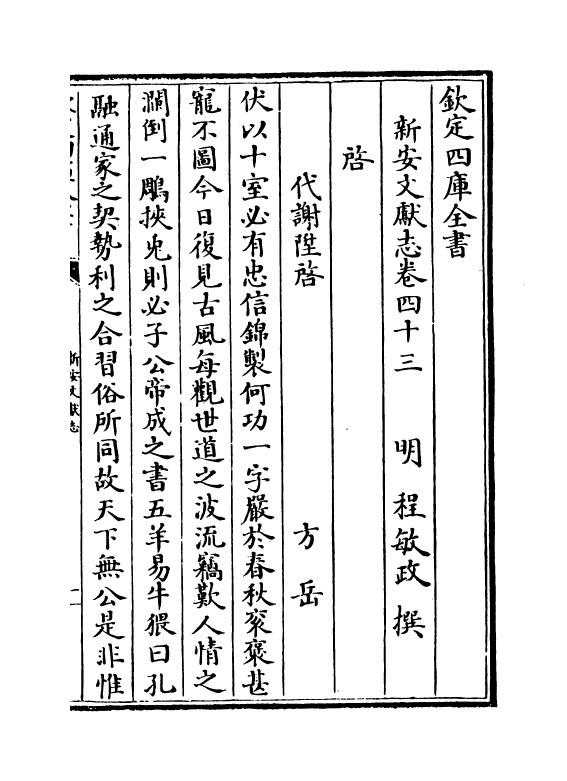 欽定四庫全書
新安文獻志卷四十三　明　程敏政　撰
啓
代謝陞啓　方岳
伏以十室必有忠信錦製何功一字嚴於春秋衮褒甚
寵不圖今日復見古風每觀世道之波流竊歎人情之
濶倒一鵰挾兎則必子公帝成之書五羊易牛猥曰孔
融通家之契勢利之合習俗所同故天下無公是非惟
新安文獻志